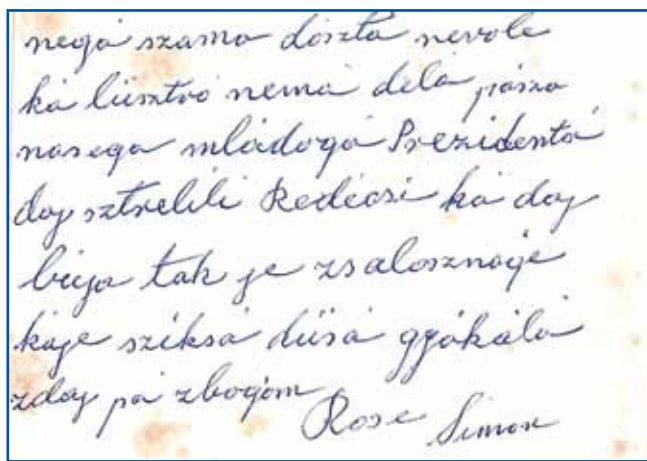 nega szamo doszta nevole
ka lüsztvo nema dela pa sza
nasega mladoga Prezidenta
doj sztrelili Redécsi ka doj
buja tak je zsalosznoje
kaje sziksa düsa gyokala
zdaj pa zbogom
Rose Simon